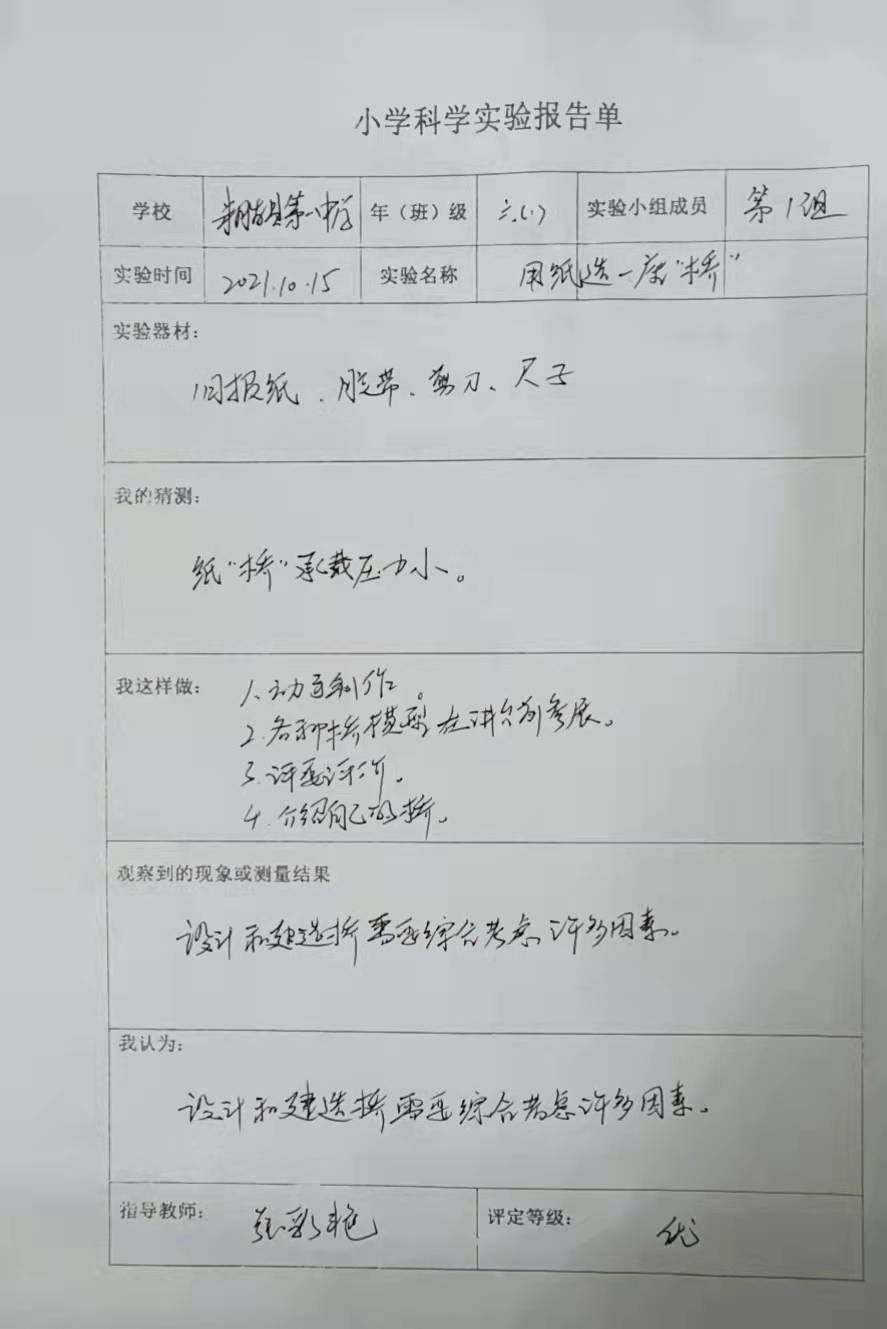 小学科学实验报告单
学校 米脂县第一中学 年（班）级 六.(1) 实验小组成员 第1组
实验时间 2021.10.15 实验名称 用纸造一座“桥”
实验器材：
旧报纸、胶带、剪刀、尺子
我的猜测：
纸“桥”承载压力小。
我这样做： 1.动手制作。
2.各种桥模型在讲台前参展。
3.评委评价。
4.介绍自己的桥。
观察到的现象或测量结果
设计和建造桥需要综合考虑许多因素。
我认为：
设计和建造桥需要综合考虑许多因素。
指导教师： 张彩艳 评定等级： 优